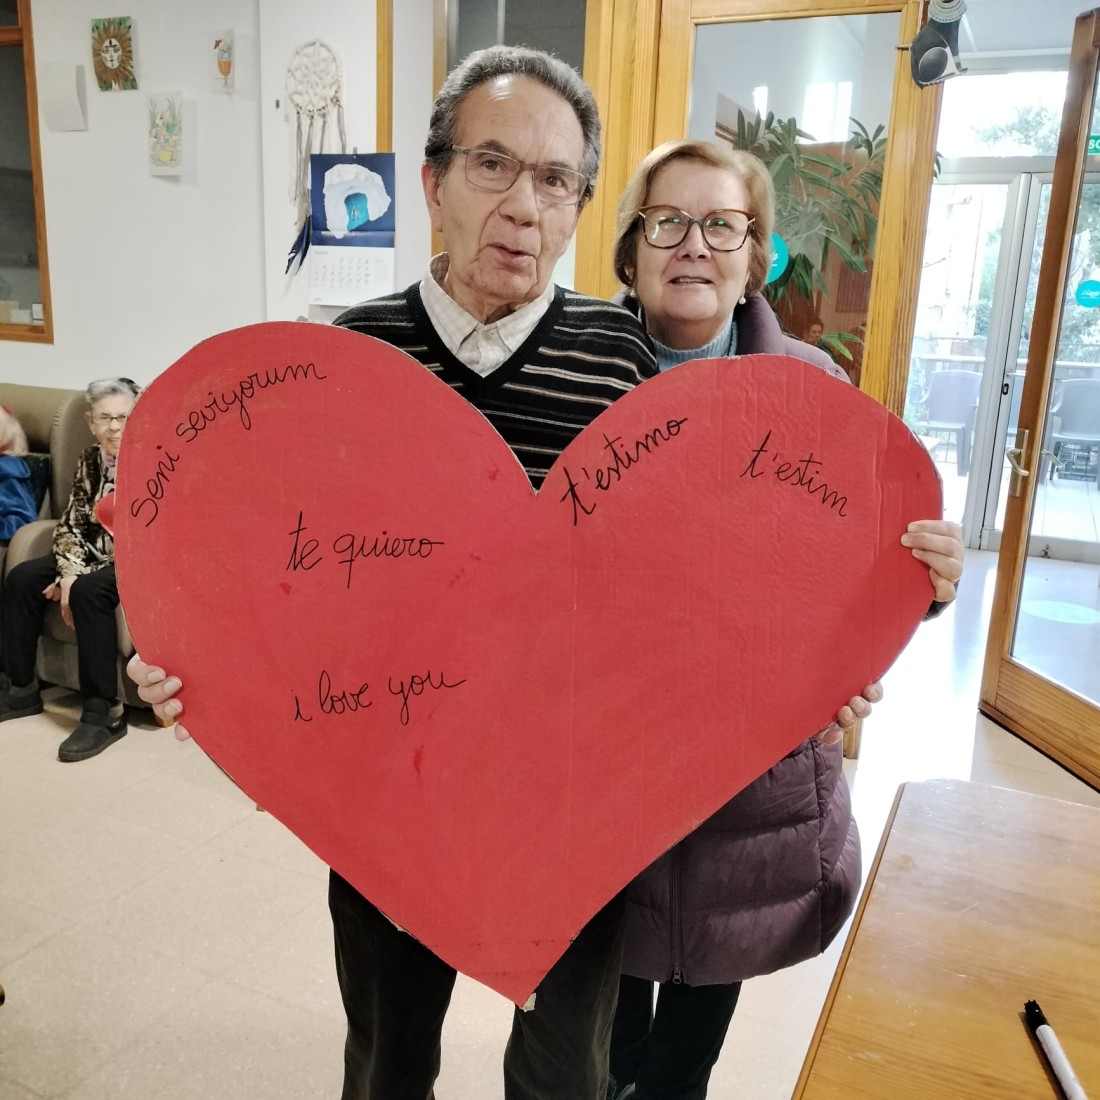 seni seviyorum
t'estimo
t'estim
te quiero
i love you